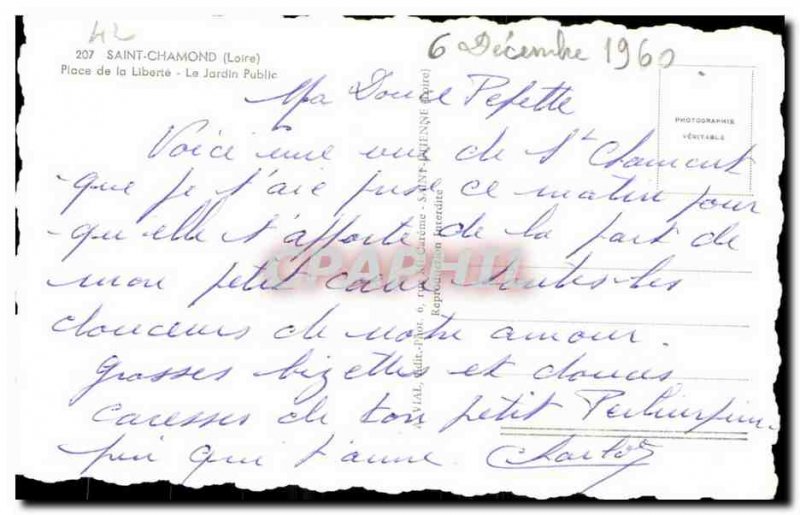 42
6 Décembre 1960
207 SAINT-CHAMOND (Loire)
Place de la Liberté - Le Jardin Public
PHOTOGRAPHIE
VÉRITABLE
Ma Douce Pepette
Voici une vue de St Chamont
que je t'aie prise ce matin pour
qu'elle t'apporte de la part de
mon petit cœur toutes les
douceurs de notre amour.
Grosses bizettes et douces
caresses de ton petit
qui t'aime.
VIAL, Édit.-Phot. 6, Carême - SAINT-ÉTIENNE (Loire)
Reproduction Interdite
CPAPHIL